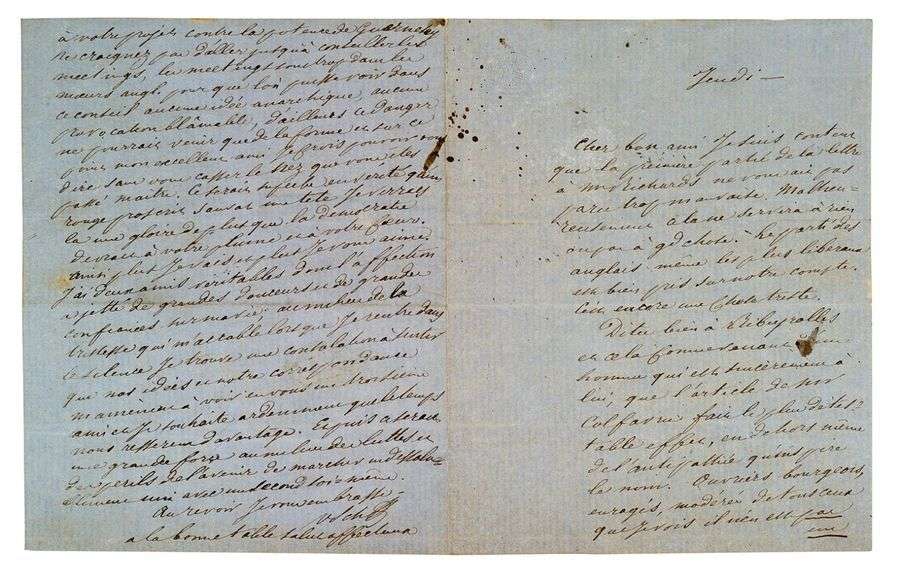 à votre projet contre la potence de Guernesey
Ne craignez pas d'aller jusqu'à conseiller les
meetings, les meetings sont trop dans les
mœurs angl. pour que l'on puisse voir dans
ce conseil aucune idée anarchique, aucune
provocation blâmable, d'ailleurs ce danger
ne pourrait venir que de la forme et sur ce
point mon excellent ami je crois pouvoir vous
dire sans vous casser le nez que vous êtes
passé maître. Ce serait superbe en vérité qu'un
rouge proscrit sauvat une tête Je verrais
là une gloire de plus que la démocratie
devrait à votre plume et à votre cœur.
ami, plus je vais et plus je vous aime
j'ai deux amis véritables dont l'affection
a jetté de grandes douceurs et de grandes
confiances sur ma vie: au milieu de la
tristesse qui m'accable lorsque je rentre dans
le silence je trouve une consolation à sentir
que nos idées et notre correspondance
m'amènent à voir en vous un troisième
ami et je souhaite ardemment que le temps
nous resserre davantage. Et puis ce serait
une grande force au milieu des luttes et
des périls de l'avenir de marcher indissolu-
blement uni avec un second soi même.
Au revoir Je vous embrasse
V Sch
a la bonne table salut affectueux
Jeudi —
Cher bon ami Je suis content
que la première partie de la lettre
à Mr Richards ne vous ait pas
paru trop mauvaise. Malheu-
reusement cela ne servira à rien
ou pas à gd chose. Le parti des
anglais même les plus libéraux
est bien pris sur notre compte.
C'est encore une chose triste.
Dites bien à Ribeyrolles
et cela comme venant d'un
homme qui est sincèrement à
lui, que l'article de mr
Colfavru fait le plus détes
table effet, en dehors même
de l'antipathie qu'inspire
le nom. Ouvriers bourgeois,
enragés, modérés de tous ceux
que je vois il n'en est pas
un